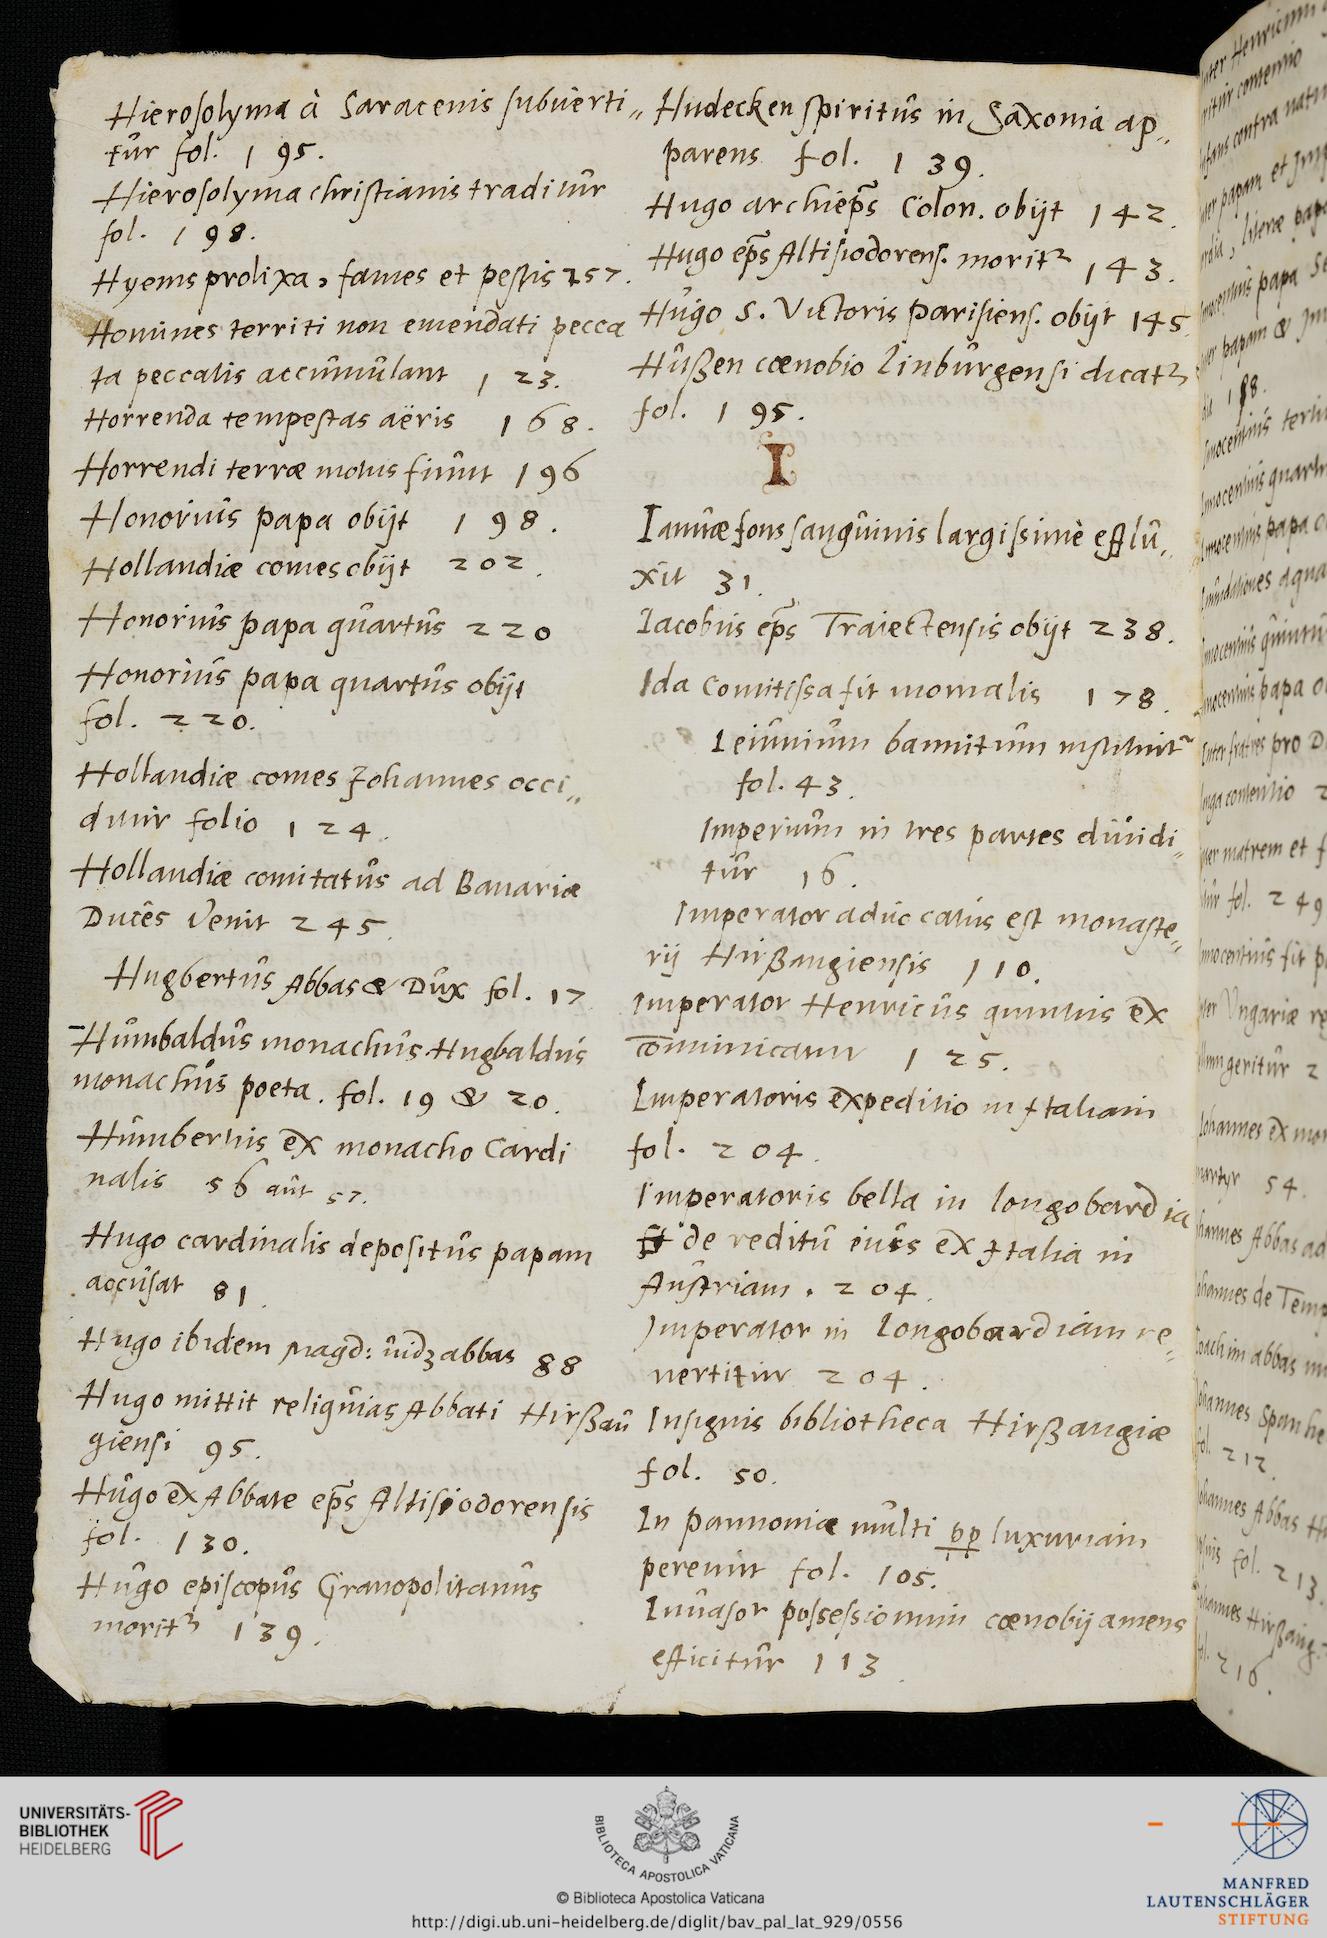 Hierosolyma à Saracenis subuerti„
tûr fol. 195.
Hierosolyma christianis traditûr
fol. 198.
Hyems prolixa, fames et pestis 257.
Homines territi non emendati pecca
ta peccatis accûmûlant 123.
Horrenda tempestas aëris 168.
Horrendi terræ motus fiûnt 196
Honoriûs papa obijt 198.
Hollandiæ comes obijt 202.
Honoriûs papa qûartûs 220
Honoriûs papa quartûs obijt
fol. 220.
Hollandiæ comes Johannes occi„
ditûr folio 124.
Hollandiæ comitatûs ad Bauariæ
Ducês Venit 245.
Hugbertûs Abbas & Dûx fol. 17
Hûmbaldûs monachûs. Hugbaldûs
monachûs poeta. fol. 19 & 20.
Hûmbertûs ex monacho Cardi
nalis 56 aût 57.
Hugo cardinalis depositûs papam
accûsat 81.
Hugo ibidem abbas 88
Hugo mittit reliqûias Abbati Hirßaû
giensi 95.
Hûgo ex Abbate ep̃s Altisiodorensis
fol. 130.
Hûgo episcopûs Granopolitanûs
morit᷑ 139.
Hudecken spiritûs in Saxonia ap„
parens fol. 139.
Hugo archiep̃s Colon. obijt 142.
Hugo ep̃s Altisiodorens. morit᷑ 143.
Hûgo S. Victoris parisiens. obijt 145.
Hûßen cœnobio Linbûrgensi dicat᷑
fol. 195.
I
Ianûæ fons sangûinis largissimè efflû„
xit 31.
Iacobûs ep̃s Traiectensis obijt 238.
Ida Comitissa fit monialis 178.
Ieiûniûm bannitûm instituit᷑
fol. 43.
Imperiûm in tres partes diûidi„
tûr 16.
Imperator aduocatûs est monaste„
rij Hirßaugiensis 110.
Imperator Henricûs quintûs ex
com̃ûnicatur 125.
Imperatoris expeditio in Italiam
fol. 204.
Imperatoris bella in Longobardia
Et de reditû eiûs ex Italia in
Aûstriam. 204.
Imperator in Longobardiam re„
uertitûr 204.
Insignis bibliotheca Hirßaugiæ
fol. 50.
In pannonia mûlti pp luxuriam
pereunt fol. 105.
Inûasor possessionum cœnobij amens
efficitûr 113
fol. 249
martyr 54.
fol. 212.
fol. 213.
fol. 216.
UNIVERSITÄTS-
BIBLIOTHEK
HEIDELBERG
BIBLIOTECA APOSTOLICA VATICANA
© Biblioteca Apostolica Vaticana
http://digi.ub.uni-heidelberg.de/diglit/bav_pal_lat_929/0556
MANFRED
LAUTENSCHLÄGER
STIFTUNG